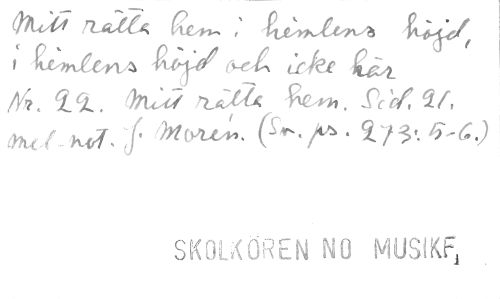 Mitt rätta hem i himlens höjd,
i himlens höjd och icke här
Nr. 22. Mitt rätta hem. Sid. 21.
mel-not. J. Morén. (Sv. ps. 273: 5-6.)
SKOLKÖREN NO MUSIKF,